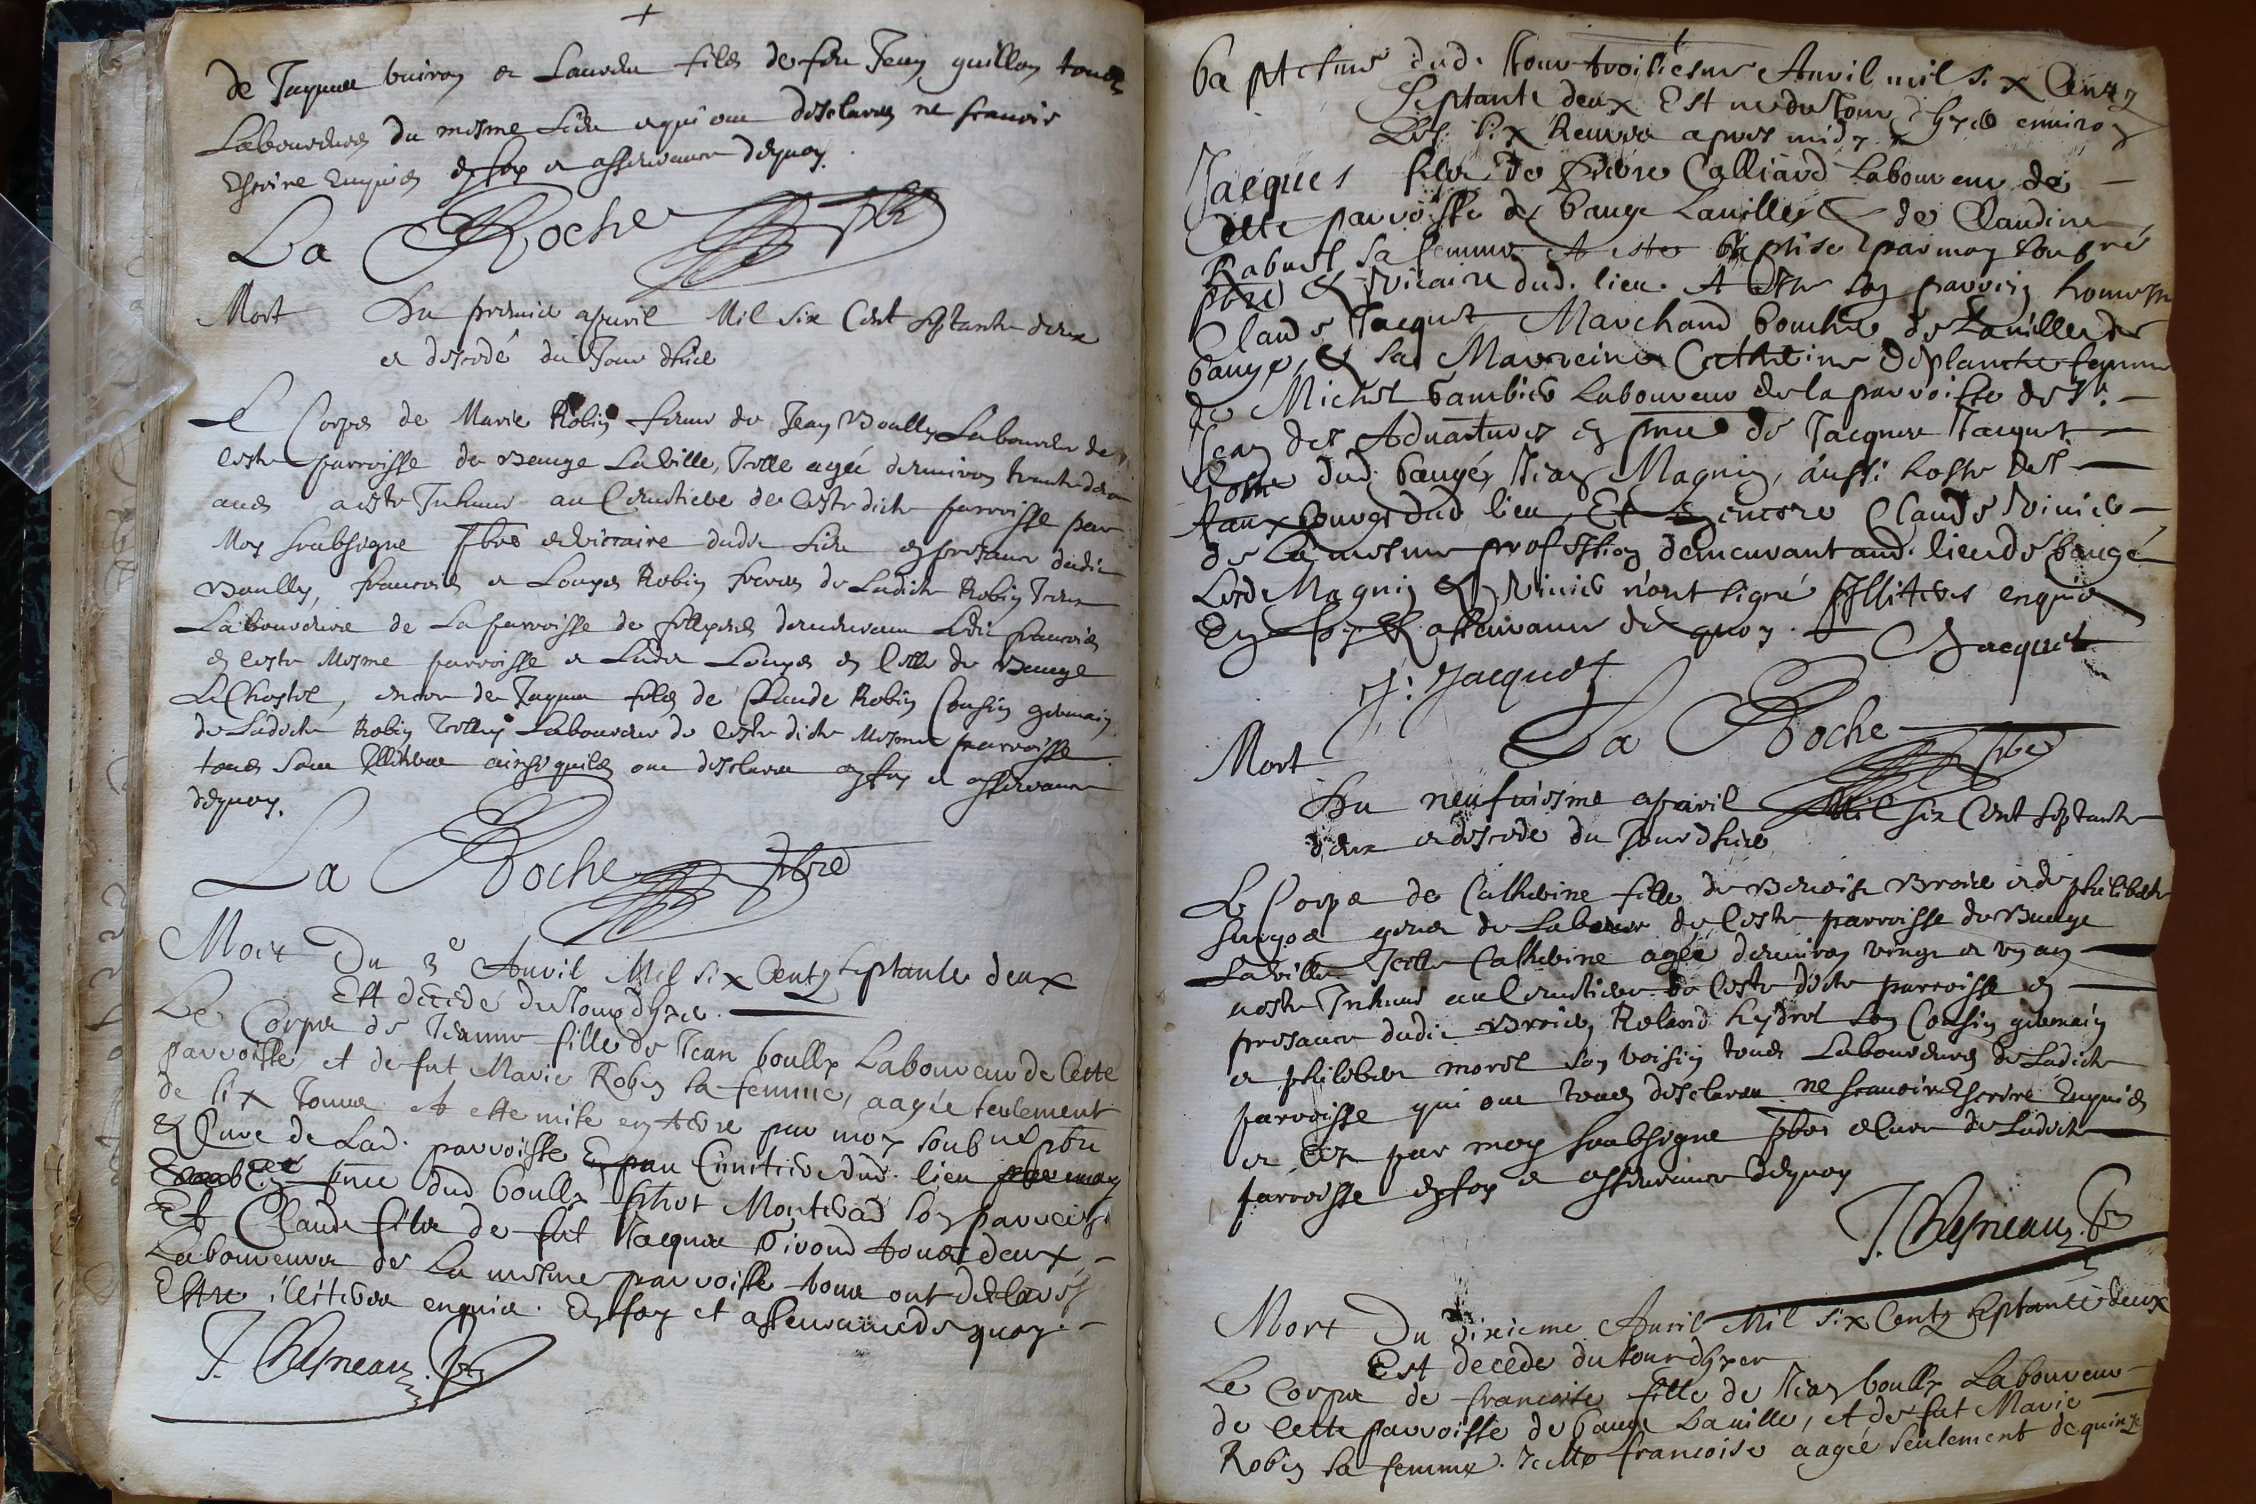 de Jaques buiron et Laurens filz de feu Jean guillon tous
Laboureurs du mesme Lieu et qui ont desclarez ne scavoir
Escrire Enquis en foy et assurance dequoy.
La Roche pbre
Mort Du premier apvril Mil six Cent Septante deux
et decedé du Jour dhier
Le Corps de Marie Robin femme de Jean Boully Laboureur de
ceste parroisse de Beauge La Ville, Icelle agée denviron trente deux
ans a este Inhumé au Cimetiere de Ceste dicte parroisse par
Moy soubsigne pbre et viccaire dudit Lieu en presance dudit
Boully, francois et Louys Robin freres de Ladicte Robin Tous
Laboureurs de La parroisse de demeurant Ledit francois
en ceste Mesme parroisse et Ledit Louys en Celle de Beauge
Le Chastel, encor de Jaques filz de Claude Robin Cousin germain
de Ladicte Robin Laboureur de Ceste dicte Mesme parroisse
tous Sont Illiteres ainsi quilz ont desclarez en foy et assurance
dequoy.
La Roche pbre
Mort Du 3e Auvil Mil six Centz Septante deux
Est décédé du Jour dhyer.
Le Corps de Jeanne fille de Jean boully Laboureur de Cette
parroisse, et de fut Marie Robin sa femme, aagée seulement
de six Jours A este mise en terre par moy soubné pbre
& Cure de Lad. parroisse au Cimetiere dud. lieu
En pnce dud boully phot Monterad son parrein
Et Claude filz de fut Jacques Givord tous deux
Laboureurs de La mesme parroisse tous ont declarés
Estre illiteres enquis. En foy et assurance de quoy.
J. Chesneau. pbre
baptesme dud. Jour troisiesme Auvil mil six Centz
Septante deux Est né du Jour dhyer environ
Les six heures apres midy
Jacques filz de Pierre Calliard Laboureur de
Cette parroisse de bauge Laville & de Claudine
Rabuel sa femme A este baptisé par moy soubné
pbre & Vicaire dud. lieu. A Esté son parrein honneste
Claude Jacquet Marchand boucher de Laville de
bauge, & sa Marreine Catherine Deplanche femme
de Michel bambier Laboureur de la parroisse de St.
Jean des Aduantures En pnce de Jacques Jacquet
hoste dud. baugé, Jean Magnin, aussi hoste des
faux bourgs dud lieu, Et encore Claude Vinier
de La mesme profession demeurant aud. lieu de baugé
Lesd. Magnin & Vinier n'ont signé Illiteres enquis
En foy & assurance de quoy.
C Jacquet
J. Jacquet
La Roche pbre
Mort
Du neufuiesme apvril Mil six Cent Septante
deux et decede du Jour dhier
Le Corps de Catherine fille de Benoist Broier et de philiberte
gens de Labeur de Ceste parroisse de Beauge
Laville Icelle Catherine agée denviron vingt et un an
a este Inhumé au Cimetiere de Ceste dicte parroisse en
presance dudit Broier, Roland hydrel son Cousin germain
et philibert morel son voisin tous Laboureurs de Ladicte
parroisse qui ont tous desclarez ne scavoir Escrire Enquis
et Ce par moy soubsigne pbre et Cure de Ladicte
parroisse en foy et assurance dequoy
J. Chesneau. pbre
Mort Du dixieme Auvil Mil six Centz Septante deux
Est decede du Jour dhyer
Le Corps de francoise fille de Jean boully Laboureur
de Cette parroisse de bauge Laville, et de fut Marie
Robin sa femme. Icelle francoise aagée seulement de quinze